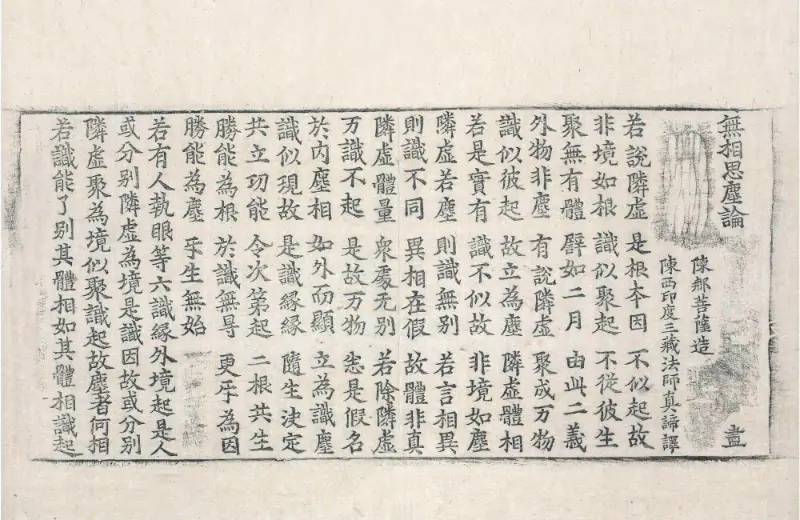 無相思塵論 盡
陳那菩薩造
陳西印度三藏法師真諦譯
若說隣虛 是根本因 不似起故
非境如根 識似聚起 不從彼生
聚無有體 譬如二月 由此二義
外物非塵 有說隣虛 聚成万物
識似彼起 故立為塵 隣虛體相
若是實有 識不似故 非境如塵
隣虛若塵 則識無別 若言相異
則識不同 異相在假 故體非真
隣虛體量 衆處无别 若除隣虛
万識不起 是故万物 悉是假名
於內塵相 如外而顯 立為識塵
識似現故 是識緣緣 隨生決定
共立功能 令次第起 二根共生
勝能為根 於識無导 更㸦為因
勝能為塵 㸦生無始
若有人執眼等六識緣外境起是人
或分別隣虛為境是識因故或分別
隣虛聚為境似聚識起故塵者何相
若識能了別其體相如其體相識起